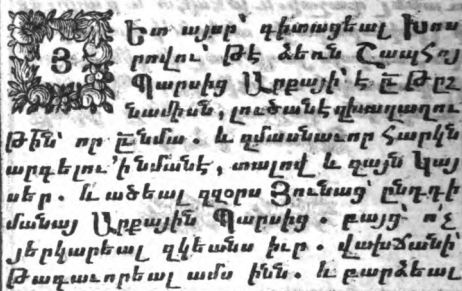 Յետ այսր՝ գիտացեալ Խոս
րովու՝ թէ ձեռն Շապհոյ
Պարսից Արքայի՝ է ը՟ թըշ
նամիսն, լուծանէ զխաղաղու
թի՟ն՝ որ ը՟նմա. և զմասնաւոր հարկն
արգելու ՚ինմանէ, տալով և զայն Կայ
սեր. և ածեալ զզօրս Յունաց՝ ընդդի
մանայ Արքային Պարսից. բայց՝ ո՛չ
յերկարեալ զկեանս իւր. վախճանի՝
Թագաւորեալ ամս ինն. և բարձեալ